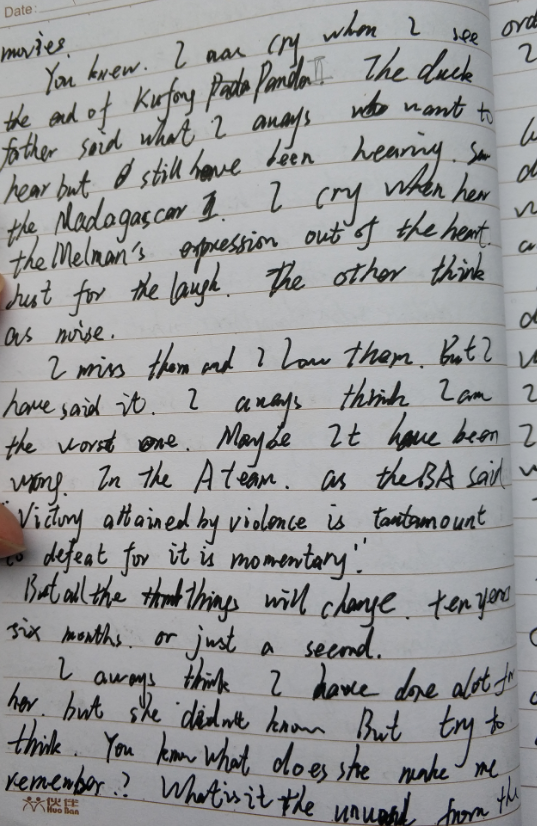 Date:
movies.
You knew. I was cry when I see
the end of Kufong Panda II. The duck
father said what I anays who want to
hear but still have been hearing.
the Madagascar I. I cry when hear
the Melman's expression out of the heart.
Just for the laugh. The other think
as noise.
I miss them and I Love them. But I
have said it. I anays think I am
the worst one. Maybe It have been
wrong. In the A team. as the BA said
"Victory attained by violence is tantamount
to defeat for it is momentary".
But all the things will change. ten years
six months. or just a second.
I aways think I have done alot for
her. but she didn't know But try to
think. You know what does she make me
remember? What is it the from the
伙伴
Huo Ban